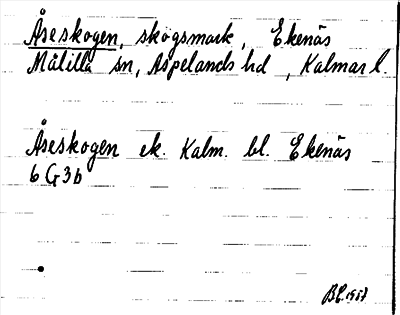 Åseskogen, skogsmark, Ekenäs
Målilla sn, Aspelands hd, Kalmar l.
Åseskogen ek. Kalm. bl. Ekenäs
6 G 3 b